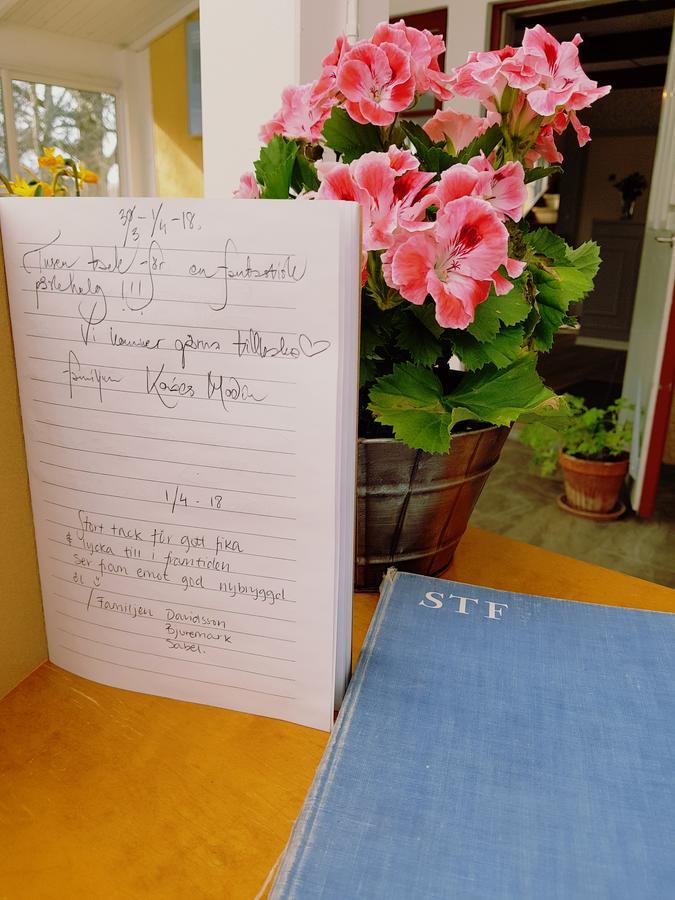 30/3 - 1/4 - 18.
Tusen tack för en fantastisk
påskhelg !!!
Vi kommer gärna tillbaka
familjen
1/4 - 18
Stort tack för gott fika
& lycka till i framtiden
Ser fram emot god nybryggd
öl
/Familjen Davidsson
Bjuremark
Sabel.
STF